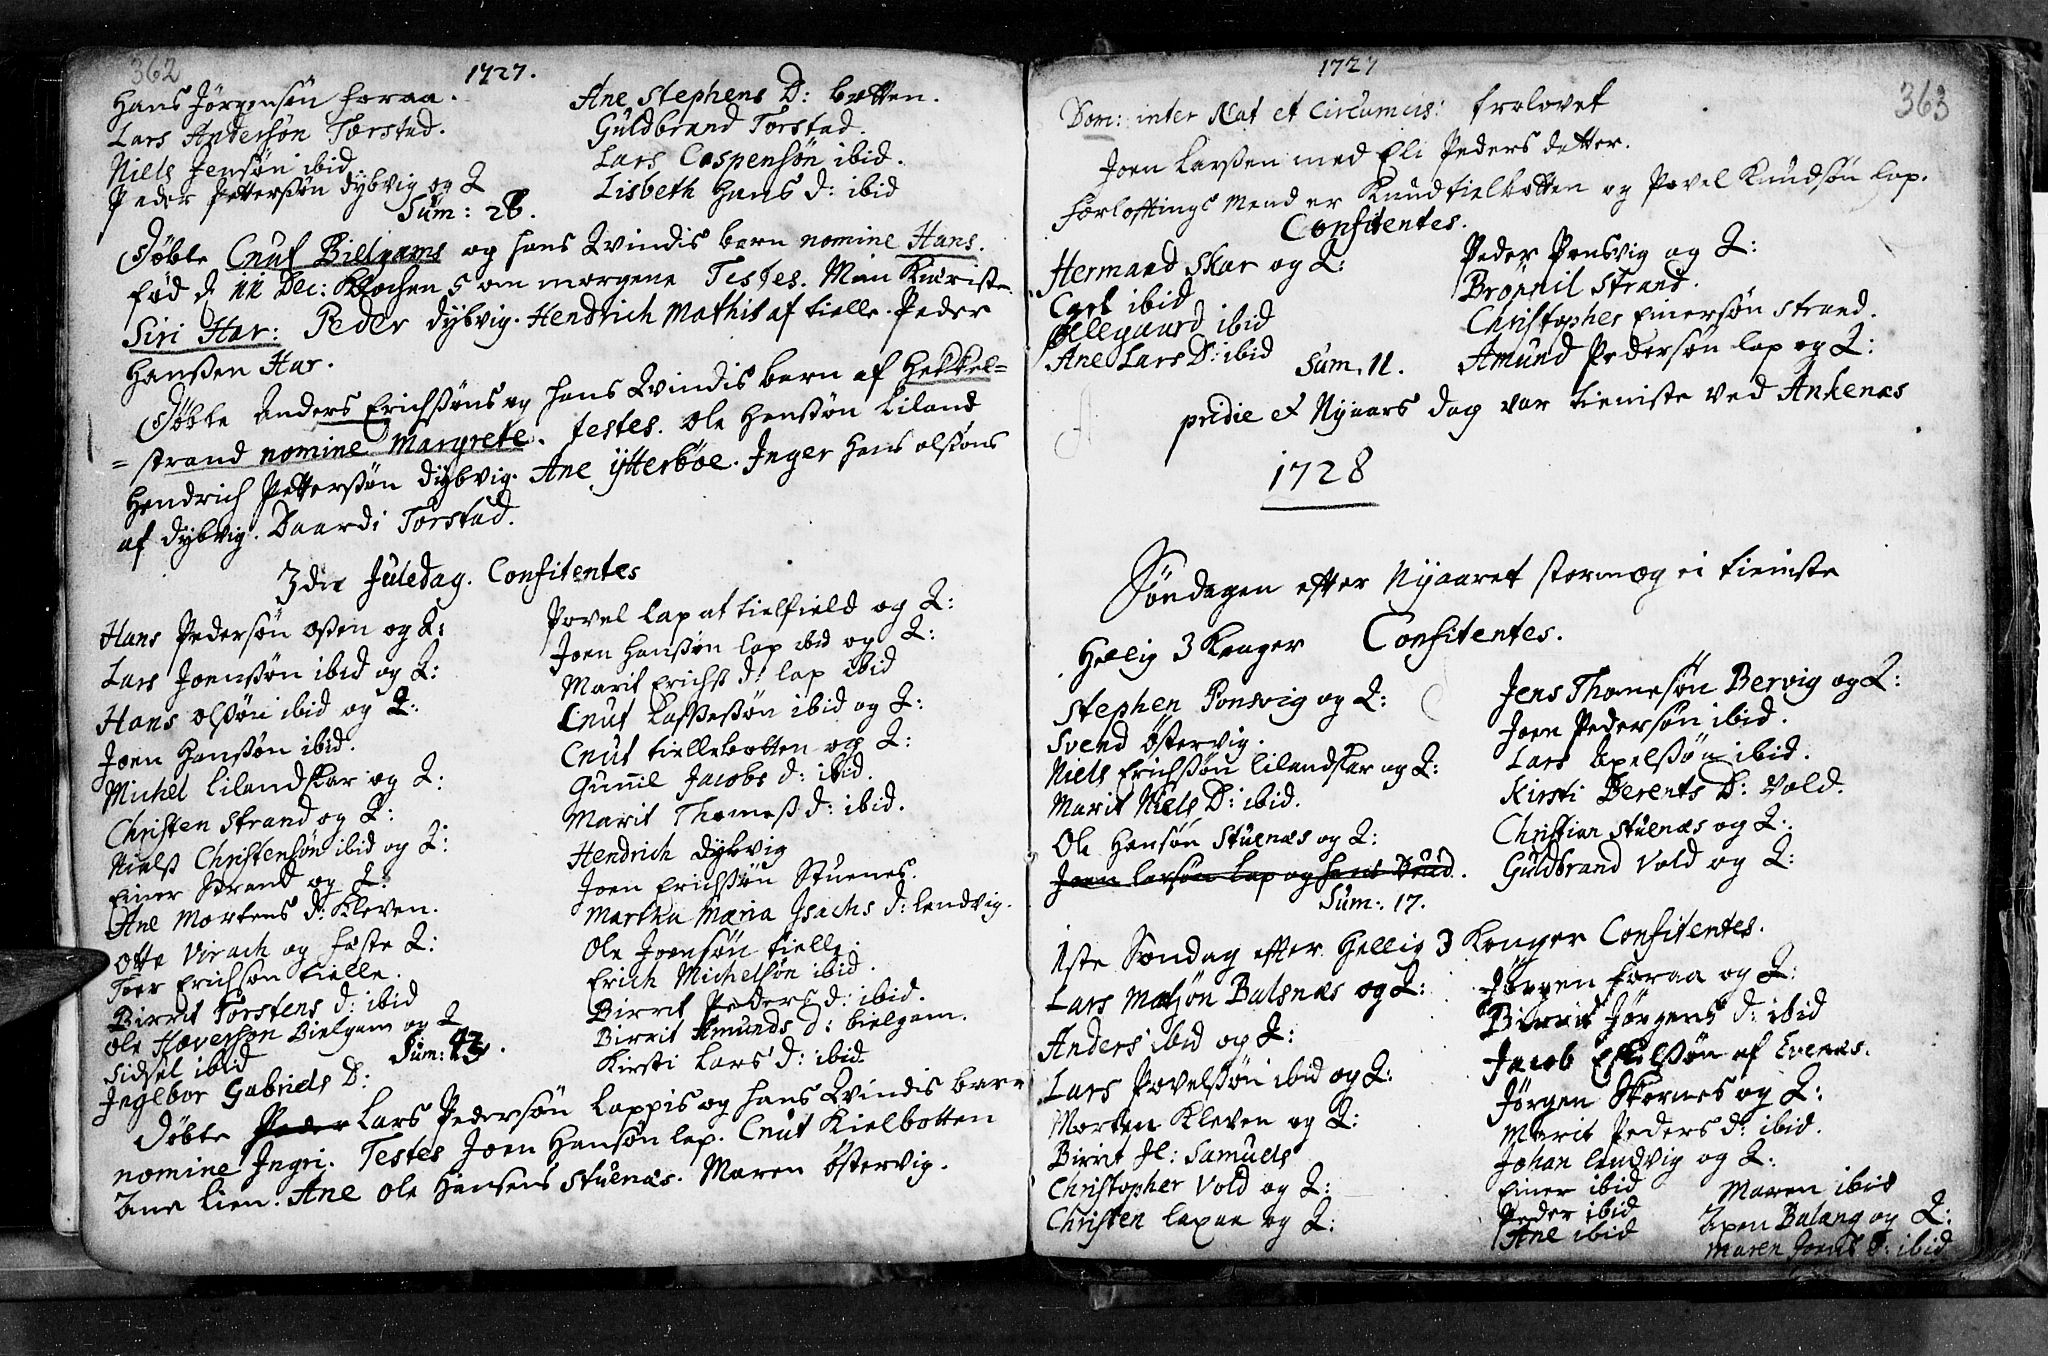 362
1727.
Hans Jörgensön foraa.
Lars Andersön Torstad.
Niels Jensön ibid
Peder Pettersön Dybvig og Q
Sum: 28.
Ane Stephens D: botten.
Guldbrand Torstad.
Lars Caspersön ibid.
Lisbeth Hans D: ibid
Döbte Cnut Bielgams og hans Qvindis barn nomine Hans.
född d 11 Dec: Klochen 5 om morgene Testes. Min Kieriste
Siri Har: Peder Dybvig. Hendrich Mathis af tielle. Peder
Hanssen Har.
Döbte Anders Erichssöns og hans Qvindis barn af Hekkel=
=strand nomine Margrete. testes. Ole Hanssön Liland
Hendrich Petterssön Dybvig. Ane ÿtterböe. Inger Hans olsöns
af Dybvig. Baardi Torstad.
3die Juledag. Confitentes
Hans Pedersön osen og Q:
Lars Joenssön ibid og Q:
Hans olssön ibid og Q:
Joen Hanssön ibid.
Michel Lilandskar og Q:
Christen Strand og Q:
Nielss Christensön ibid og Q:
Einer Strand og Q:
Ane Mortens D: Kleven.
Otte Virach og fæste Q:
Toer Erichson tielle.
Birrit Torstens d: ibid
Ole Haversön Bielgam og Q
Sidsel ibid
Ingebor Gabriels D:
Sum: 43.
Povel lap at tielfield og Q:
Joen Hanssön lap ibid og Q:
Marit Erichs d: lap ibid
Cnut Lassessön ibid og Q:
Cnut tiellebotten og Q:
Gunnil Jacobs d: ibid.
Marit Thomess d: ibid.
Hendrich Dybvig
Joen Erichssön Stuenes.
Martha Maria Isachs d: lendvig.
Ole Joensön tielle.
Erich Michelsön ibid.
Birrit Peders d: ibid.
Birrit Amunds d: bielgam.
Kirsti Lars d: ibid.
Döbte Peder Lars Pedersön Lappis og hans Qvindis barn
nomine Ingri. Testes Joen Hansön lap. Cnut Kielbotten
Lien. Ane Ole Hansens Stuenæs. Maren Östervig.
1727
363
Dom: inter Nat et Circumcis: trolovet
Joen Larssen med Eli Peders datter.
forloftings Mend er Knud tielbotten og Povel Knudsön lap.
Confitentes.
Hermand Skar og Q:
Carl ibid
Ellegaard ibid
Ane Lars D: ibid
Sum. 11.
Peder Ponsvig og Q:
Brönnil Strand.
Christopher Einersön strand.
Amund Pedersön lap og Q:
pridie et Nyaars dag var tieniste ved Ankenæs
1728
Söndagen efter Nyaaret storm og ei tieniste
Hellig 3 Konger Confitentes.
Stephen Ponsvig og Q:
Svend Östervig.
Niels Erichssön Lilandskar og Q:
Marit Niels D: ibid.
Ole Hansön Stuenæs og Q:
Joen larsön Lap og hans Brud.
Sum: 17.
Jens Thomesön Bervig og Q:
Joen Pedersön ibid.
Lars Axelssön ibid.
Kirsti Berents D: Vold.
Christian Stuenæs og Q:
Guldbrand Vold og Q:
1ste Söndag efter Hellig 3 Konger Confitentes.
Lars Matsön Balsnæs og Q:
Anders ibid og Q:
Lars Povelssön ibid og Q:
Morten Kleven og Q:
Birrit Jl: Samuels
Christopher Vold og Q:
Christen og Q:
Jörgen foraa og Q:
Birrit Jörgens d: ibid
Jacob Eskilssön af Evenæs.
Jörgen Skarnes og Q:
Marit Peders d: ibid.
Johan lendvig og Q:
Einer ibid
Peder ibid
Ane ibid
Maren ibid
Balang og Q:
Maren Joens D: ibid